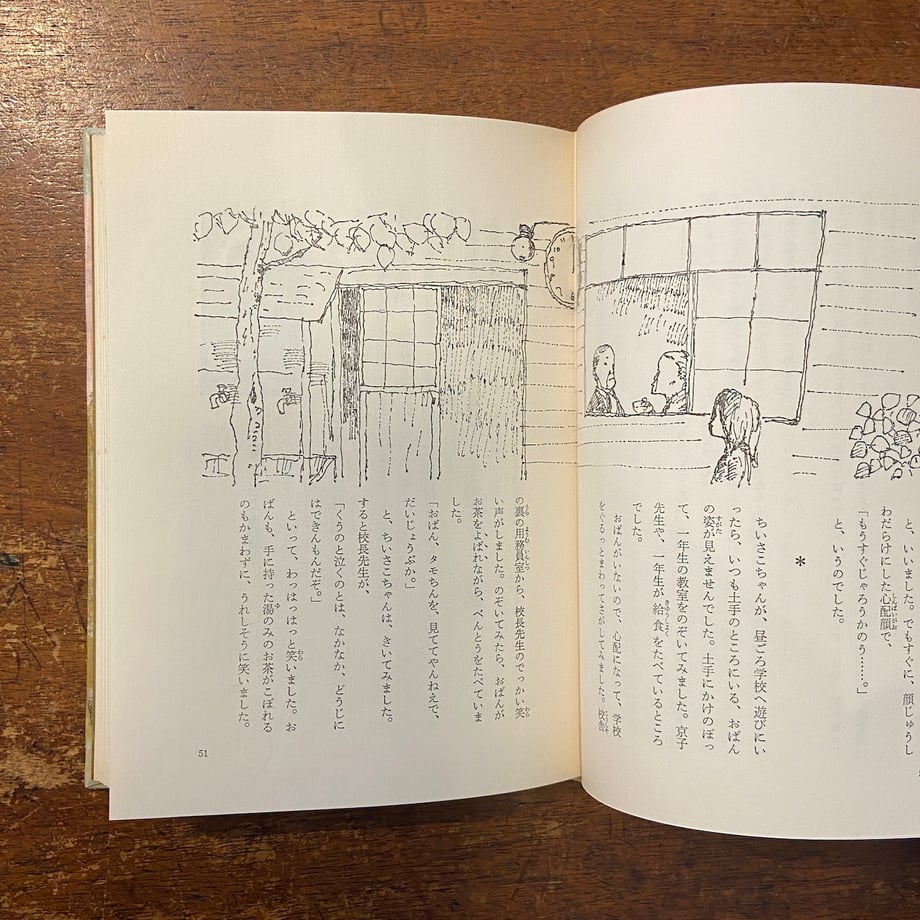 と、いいました。でもすぐに、顔じゅうし
わだらけにした心配顔で、
「もうすぐじゃろうかのう……。」
と、いうのでした。
*
ちいさこちゃんが、昼ごろ学校へ遊びにい
ったら、いつも土手のところにいる、おばん
の姿が見えませんでした。土手にかけのぼっ
て、一年生の教室をのぞいてみました。京子
先生や、一年生が給食をたべているところ
でした。
おばんがいないので、心配になって、学校
をぐるっとまわってさがしてみました。校舎
の裏の用務員室から、校長先生のでっかい笑
い声がしました。のぞいてみたら、おばんが
お茶をよばれながら、べんとうをたべていま
した。
「おばん、タモちんを、見ててやんねえで、
だいじょうぶか。」
と、ちいさこちゃんは、きいてみました。
すると校長先生が、
「くうのと泣くのとは、なかなか、どうじに
はできんもんだぞ。」
といって、わっはっはっと笑いました。お
ばんも、手に持った湯のみのお茶がこぼれる
のもかまわずに、うれしそうに笑いました。
51